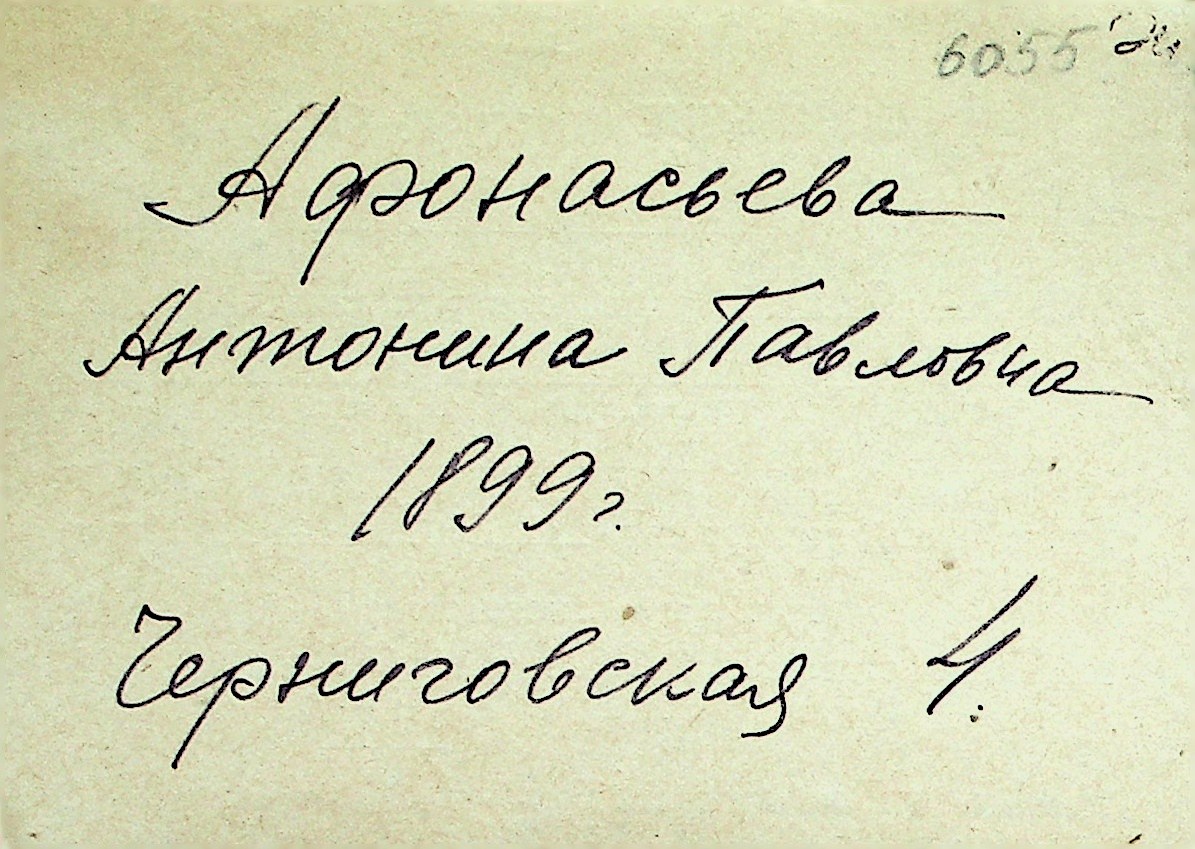 6055
Афонасьева
Антонина Павловна
1899г.
Черниговская 4.